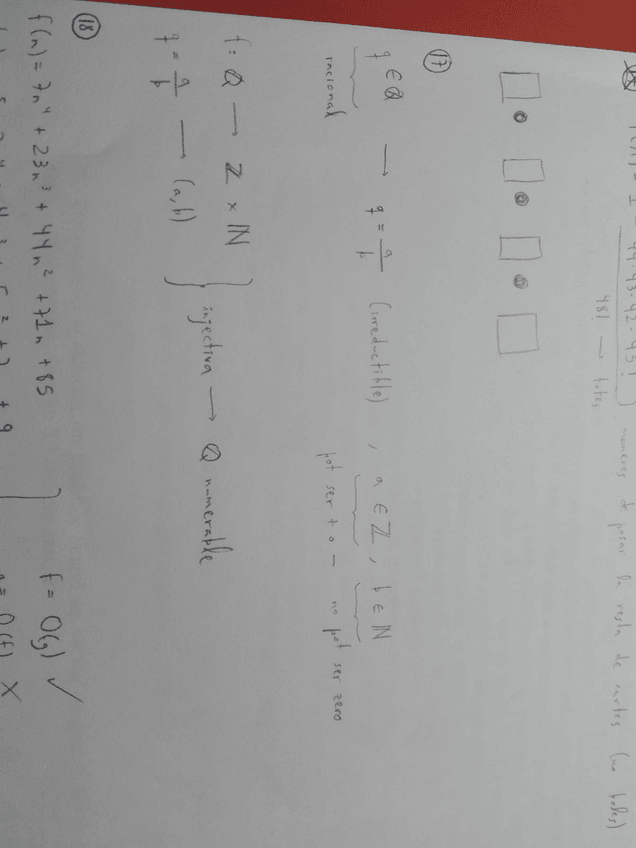 44·43·42·45!
48! → totes
maneres de posar la resta de cartes (no boles)
(17)
q ∈ Q → q = a/b (irreductible), a ∈ Z, b ∈ N
racional
pot ser + o −
no pot ser zero
f: Q → Z × N
q = a/b → (a,b)
injectiva → Q numerable
(18)
f(n) = 7n⁴ + 23n³ + 44n² + 71n + 85
f = O(g) ✓
g = O(f) ✗